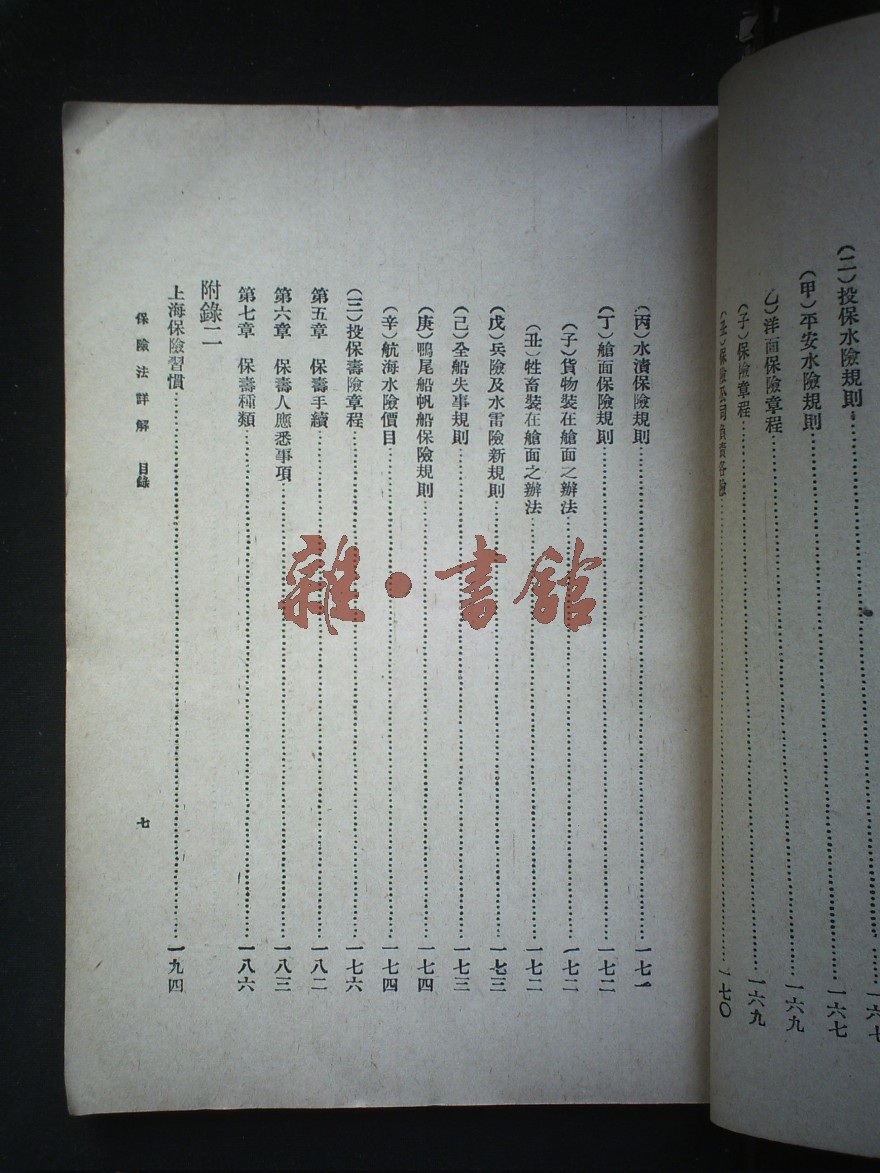 (二)投保水險規則………一六七
(甲)平安水險規則………一六七
(乙)洋面保險章程………一六九
(子)保險章程………一六九
(丑)保險公司負責各險………一七〇
(丙)水漬保險規則………一七一
(丁)艙面保險規則………一七二
(子)貨物裝在艙面之辦法………一七二
(丑)牲畜裝在艙面之辦法………一七二
(戊)兵險及水雷險新規則………一七三
(己)全船失事規則………一七三
(庚)鴨尾船帆船保險規則………一七四
(辛)航海水險價目………一七四
(三)投保壽險章程………一七六
第五章 保壽手續………一八二
第六章 保壽人應悉事項………一八三
第七章 保壽種類………一八六
附錄二
上海保險習慣………一九四
保險法詳解 目錄
七
雜·書館